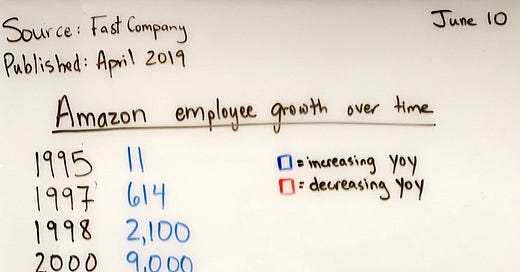 Source: Fast Company
June 10
Published: April 2019
Amazon employee growth over time
1995 11
1997 614
1998 2,100
2000 9,000
= increasing yoy
= decreasing yoy